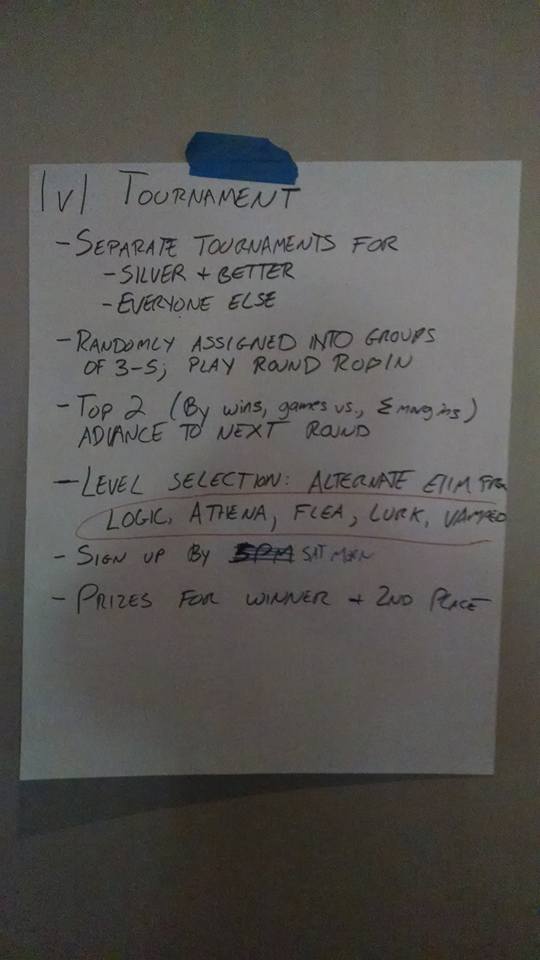 1v1 TOURNAMENT
- SEPARATE TOURNAMENTS FOR
- SILVER + BETTER
- EVERYONE ELSE
- RANDOMLY ASSIGNED INTO GROUPS
OF 3-5; PLAY ROUND ROBIN
- TOP 2 (By wins, games vs., Σ margins)
ADVANCE TO NEXT ROUND
- LEVEL SELECTION: ALTERNATE ELIM FROM
LOGIC, ATHENA, FLEA, LURK, VAMPED
- SIGN UP BY 5PM SAT MORN
- PRIZES FOR WINNER + 2ND PLACE